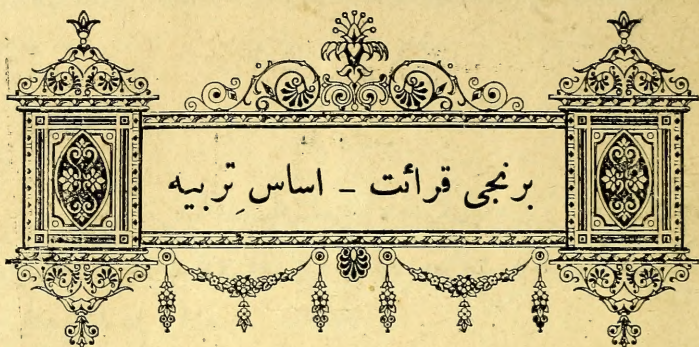 برنجی قرائت - اساسِ تربیه